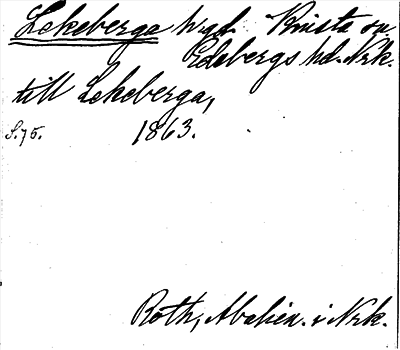 Lekeberga hgd. Knista sn
Edsbergs hd. Nrk.
till Lekeberga,
S. 75. 1863.
Roth, Abalien. i Nrk.